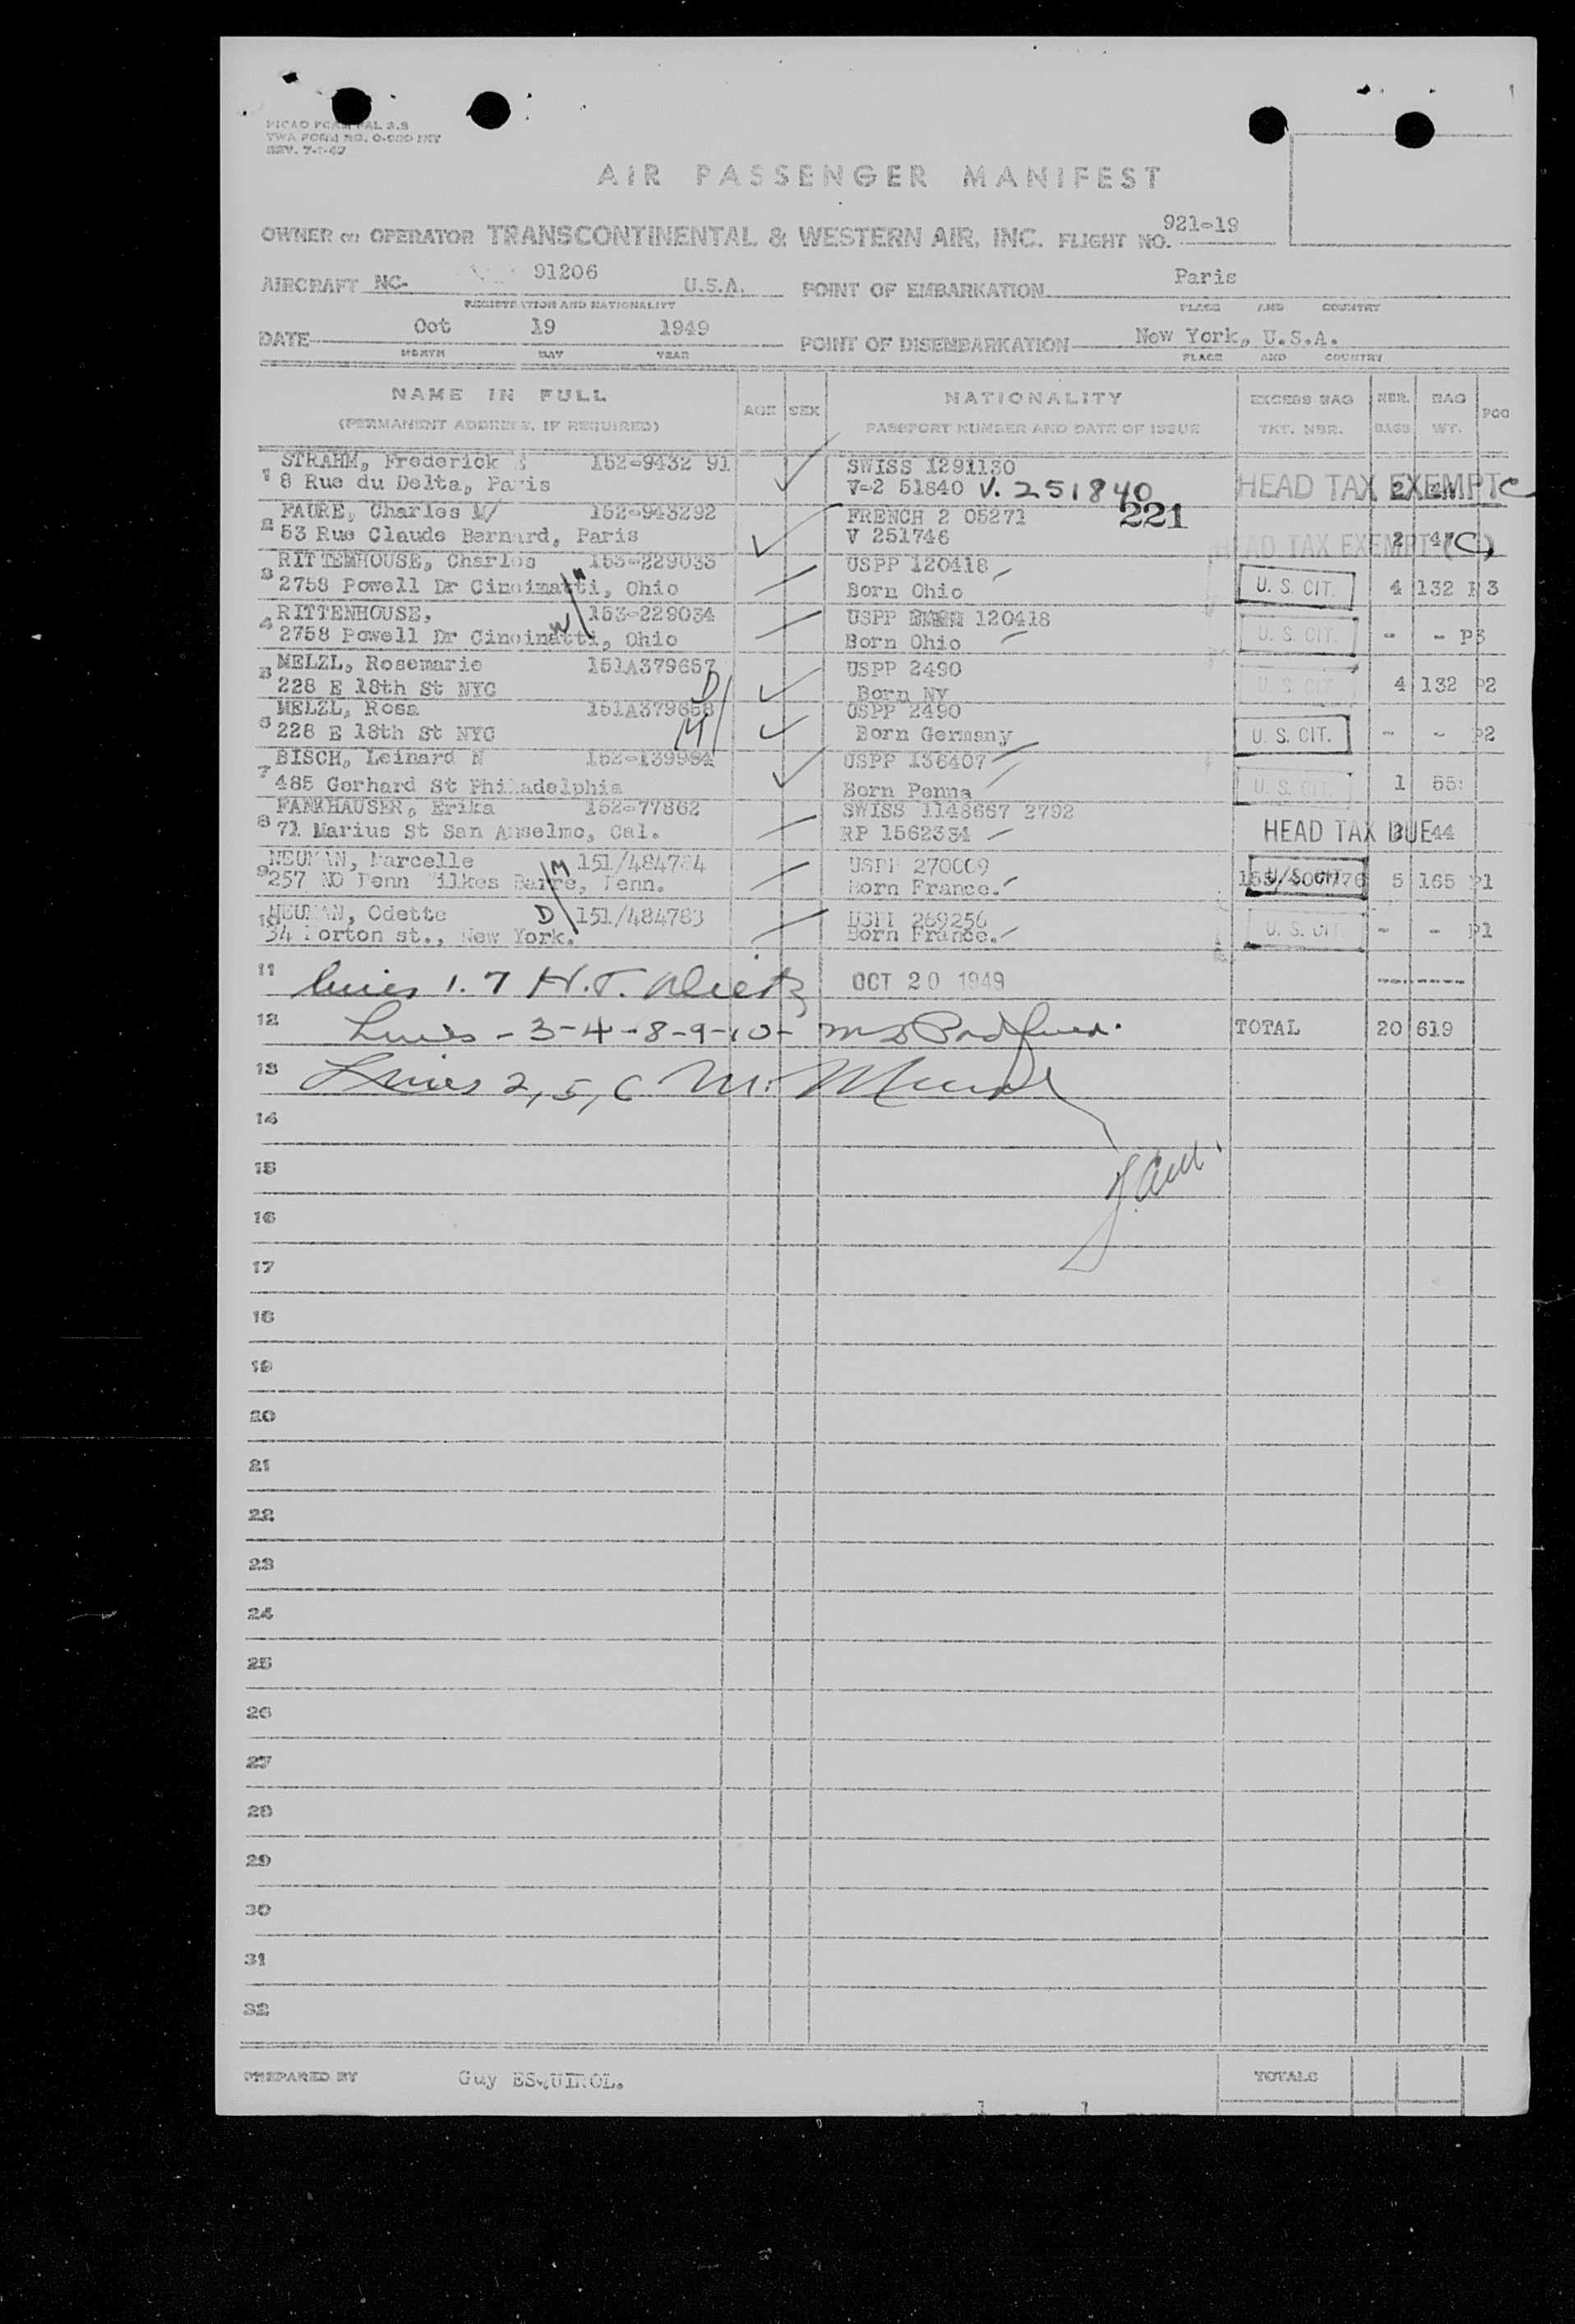 PICAO FORM PAL 2.2
TWA FORM NO.
REV.
AIR PASSENGER MANIFEST
OWNER OR OPERATOR TRANSCONTINENTAL & WESTERN AIR, INC. FLIGHT NO. 921-19
AIRCRAFT NC- 91206 U.S.A. POINT OF EMBARKATION Paris
REGISTRATION AND NATIONALITY PLACE AND COUNTRY
DATE Oct 19 1949 POINT OF DISEMBARKATION New York, U.S.A.
MONTH DAY YEAR PLACE AND COUNTRY
NAME IN FULL AGE SEX NATIONALITY EXCESS BAG NBR. BAG
(PERMANENT ADDRESS, IF REQUIRED) PASSPORT NUMBER AND DATE OF ISSUE TKT. NBR. BAGS WT.
1 STRAHM, Frederick 152-9432 91 SWISS 1291130
8 Rue du Delta, Paris V-2 51840 V. 251840 HEAD TAX EXEMPT C
2 FAURE, Charles M/ 152-943292 FRENCH 2 05271 221
53 Rue Claude Bernard, Paris V 251746 HEAD TAX EXEMPT (C) 2
3 RITTEMHOUSE, Charles 153-229033 USPP 120418
2758 Powell Dr Cincinatti, Ohio Born Ohio U. S. CIT. 4 132 P3
4 RITTENHOUSE, W/ 153-229034 USPP 120418
2758 Powell Dr Cincinatti, Ohio Born Ohio U. S. CIT. - - P3
5 MELZL, Rosemarie 151A379657 USPP 2490
228 E 18th St NYC D/ Born NY U. S. CIT. 4 132 P2
6 MELZL, Rosa 151A379658 USPP 2490
228 E 18th St NYC M/ Born Germany U. S. CIT. - - P2
7 BISCH, Leinard N 152-139984 USPP 136407
485 Gerhard St Philadelphia Born Penna U. S. CIT. 1 55
8 FANKHAUSER, Erika 152-77862 SWISS 1148667 2792
71 Marius St San Anselmo, Cal. RP 1562334 HEAD TAX DUE 44
9 NEUMAN, Marcelle M/ 151/484784 USPP 270009
257 NO Penn Wilkes Barre, Penn. Born France. U. S. CIT. 5 165 P1
10 NEUMAN, Odette D/ 151/484783 USPP 269256
34 Morton st., New York. Born France. U. S. CIT. - - P1
11 Lines 1. 7 H.T. OCT 20 1949 -------
12 Lines - 3-4-8-9-10- TOTAL 20 619
13 Lines 2, 5, 6 M.
14
15
16
17
18
19
20
21
22
23
24
25
26
27
28
29
30
31
32
PREPARED BY Guy ESQUIROL. TOTALS
1 1